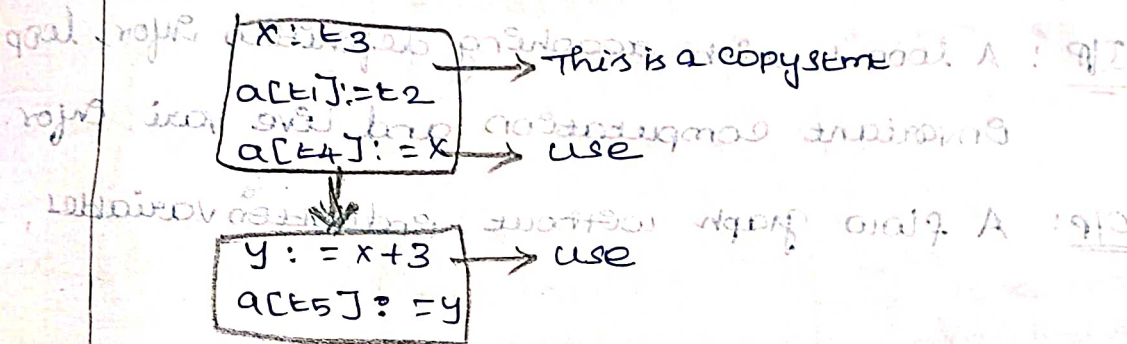 x : t3
→ This is a copy stmt
a[t1] := t2
a[t4] : = x → use
y : = x+3 → use
a[t5] : = y